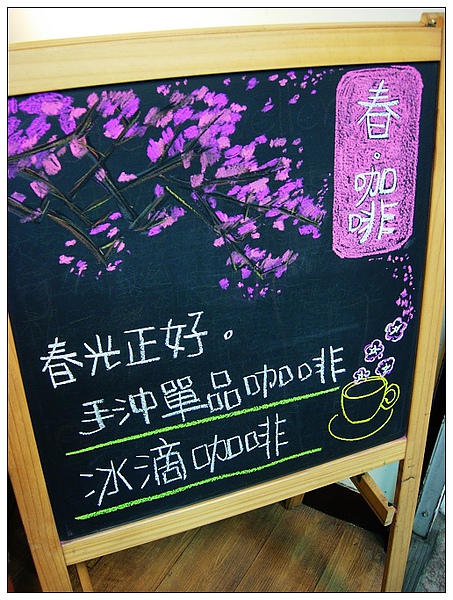 春·咖啡
春光正好。
手沖單品咖啡
冰滴咖啡